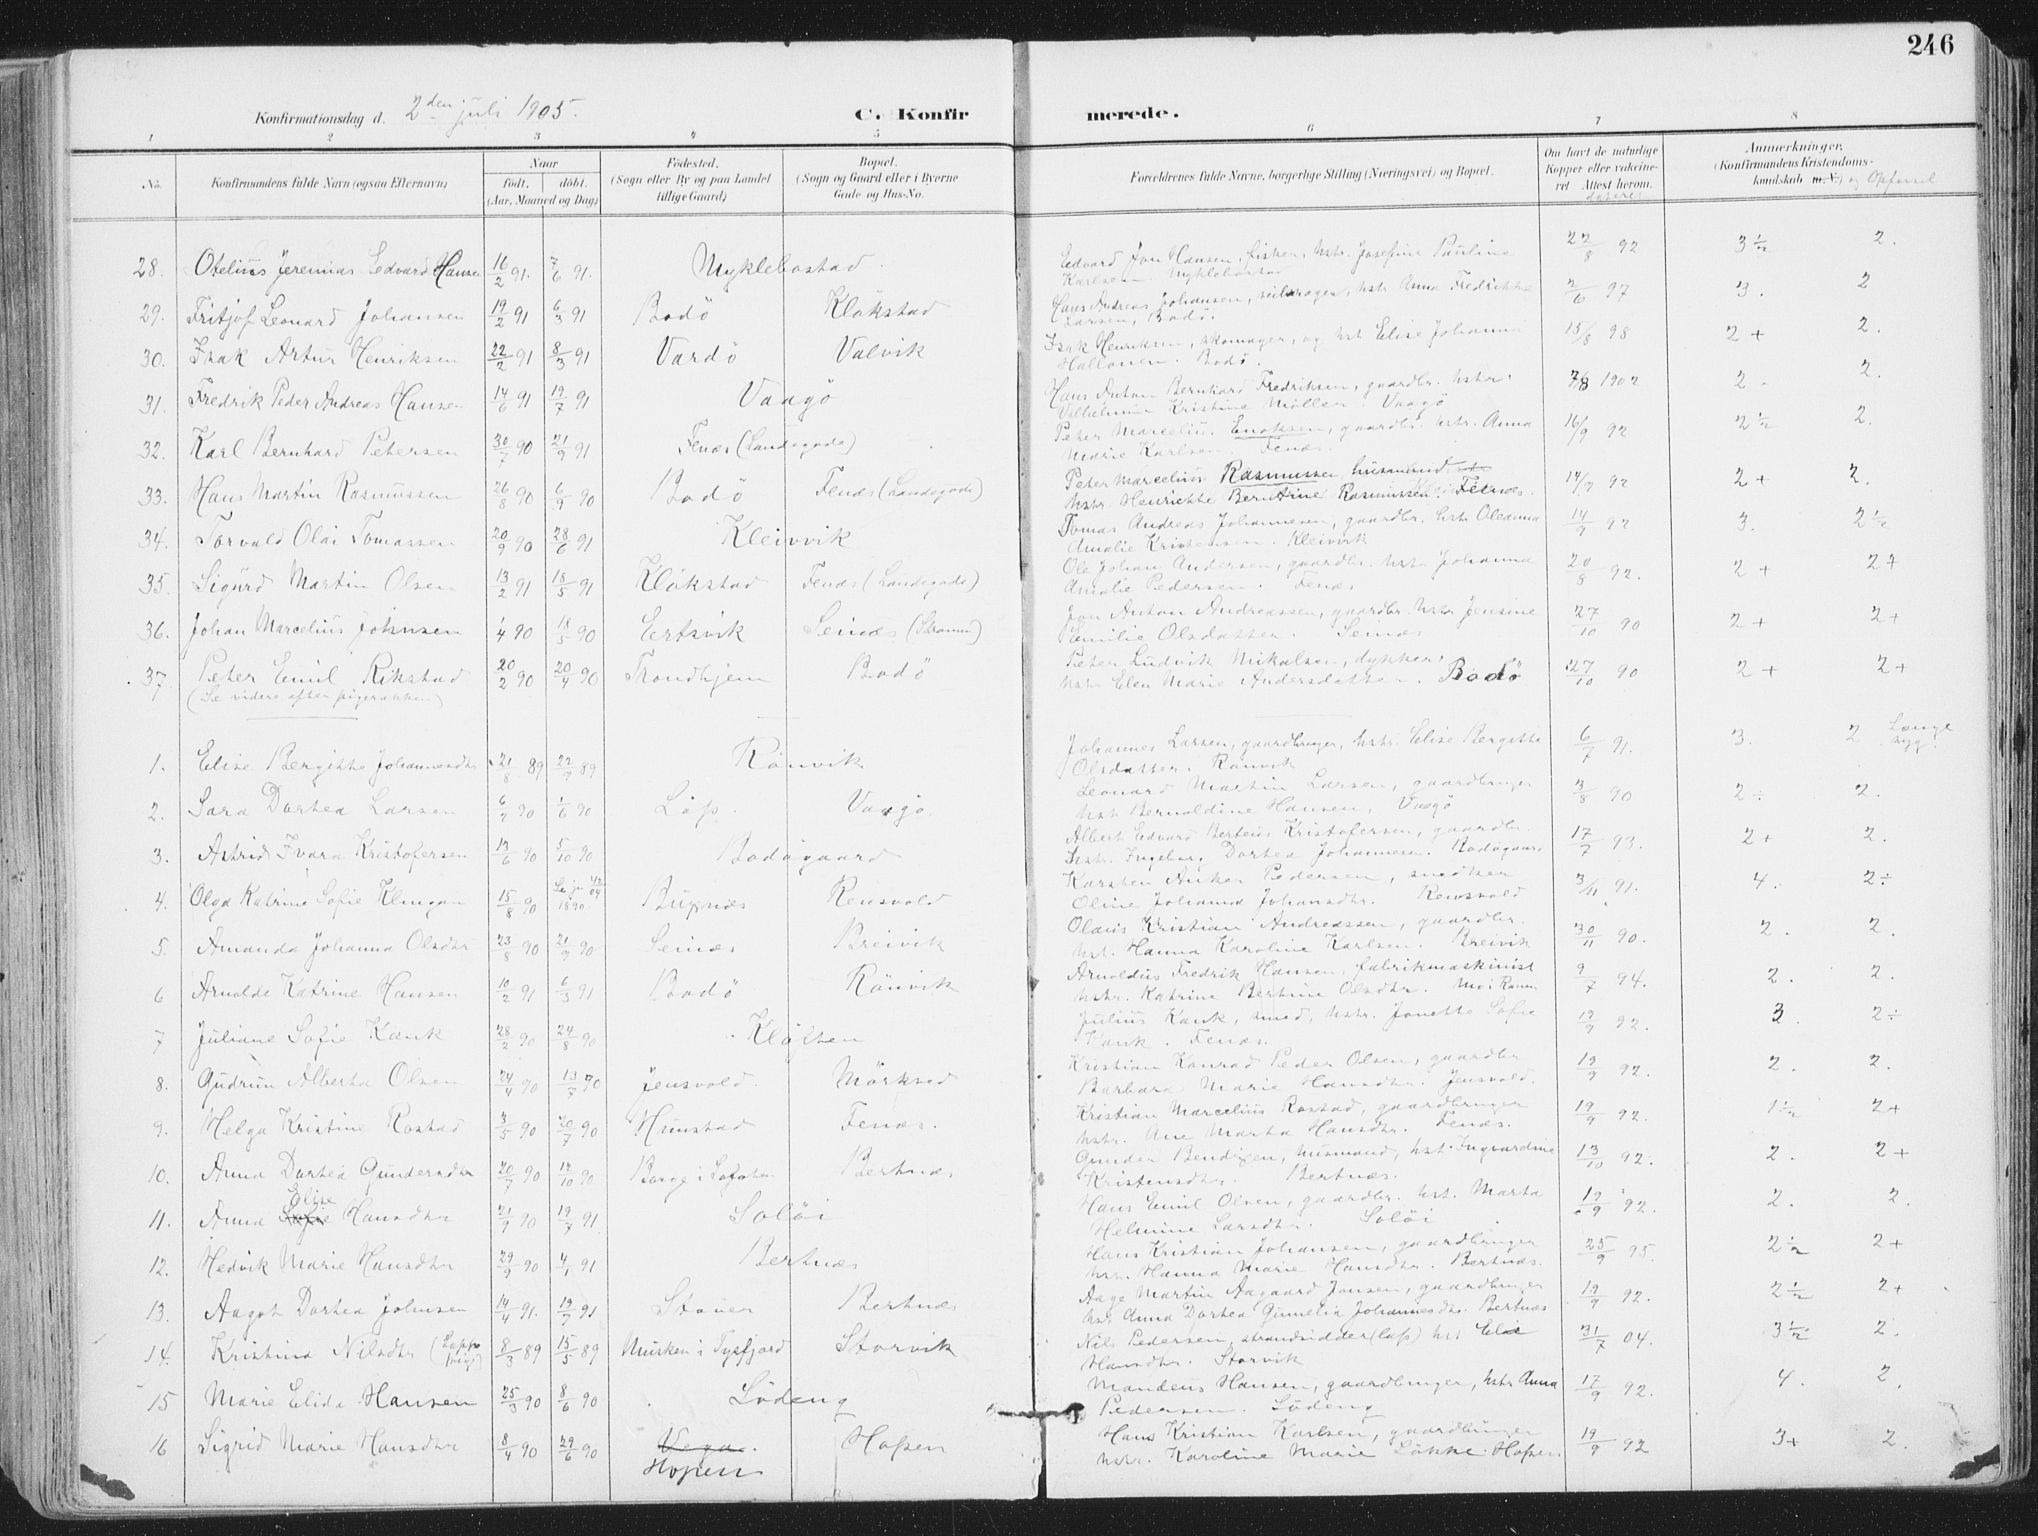 246
Konfirmationsdag d. 2den juli 1905.
C. Konfirmerede.
1 2 3 4 5 6 7 8
No. Konfirmandens fulde Navn (ogsaa Efternavn) Naar födt. döbt. (Aar, Maaned og Dag) Födested. (Sogn eller By og paa Landet tillige Gaard) Bopæl. (Sogn og Gaard eller i Byerne Gade og Hus-No. Forældrenes fulde Navne, borgerlige Stilling (Næringsvei) og Bopæl. Om havt de naturlige Kopper eller vakcineret. Attest herom. dateret Anmærkninger. (Konfirmandens Kristendomskundskab m. V.) og Opførsel
28. Otelius Jeremias Edvard Hansen 16/2 91. 7/6 91. Myklebostad. Edvard Jon Hansen, fisker, hstr. Josefine Pauline 22/8 92 3½ 2.
Karlsen. Myklebostad
29. Fritjof Leonard Johansen 19/2 91 6/3 91 Bodö Klökstad Hans Andreas Johansen, seilmager, hstr. Anna Fredrikke 2/6 97 3. 2
Larsen, Bodö.
30. Isak Artur Henriksen 22/2 91 8/3 91 Vardö Valvik Isak Henriksen, skomager, og hst Elise Johanna 15/8 98 2+ 2.
Hallonen. Bodö.
31. Fredrik Peder Andreas Hansen 14/6 91 19/7 91 Vaagö Hans Anton Bernhard Fredriksen, gaardbr. hstr. 7/8 1902 2. 2.
Vilhelmine Kristine Möller. Vaagö
32. Karl Bernhard Petersen 30/7 90 21/9 91 Fenæs (Landegode) Peter Marcelius Enoksen, gaardbr. hstr. Anna 16/9 92 2½ 2.
Marie Karlsen. Fenæs.
33. Hans Martin Rasmussen 26/8 90 6/9 90 Bodö Fenæs (Landegode) Peter Marcelius Rasmussen husmand 14/9 92 2+ 2.
hstr. Henrikke Berntine Rasmussen. Fenæs.
34. Torvald Olai Tomassen 20/9 90 28/6 91 Kleivvik Tomas Andreas Johannesen, gaardbr. hstr Oleanna 14/9 92 3. 2½
Amalie Kristensen. Kleivvik
35. Sigurd Martin Olsen 13/2 91 18/5 91 Klökstad Fenæs (Landegode) Ole Johan Andersen, gaardbr. hstr Johanna 20/8 92. 2+ 2+
Amalie Pedersen. Fenæs
36. Johan Marcelius Johnsen 1/4 90 18/5 90 Ertsvik Seinæs Jon Anton Andreassen, gaardbr. hstr Jensine 27/10 90 2+ 2+
Emilie Olsdatter. Seinæs
37 Peter Emil Rikstad 20/2 90 20/4 90 Trondhjem Bodö Peter Ludvik Mikalsen, dykker. 27/10 90 2+ 2+
(Se videre efter pigerækken) hstr Elen Marie Andersdatter. Bodö
1. Elise Bergitte Johannesdtr 21/8 89 22/9 89 Rönvik Johannes Larsen, gaardbruger, hstr. Elise Bergitte 6/7 91. 3. 2 Længe syg.
Olsdatter. Rönvik
2. Sara Dortea Larsen 6/2 90 1/6 90 Löp. Vaagö. Leonard Martin Larsen, gaardbruger 3/8 90 2÷ 2.
hstr Bernoldine Hansen, Vaagö
3. Astrid Ivara Kristofersen 13/6 90 5/10 90 Bodögaard Albert Edvard Berteus Kristofersen, gaardbr. 17/7 93. 2+ 2.
hstr. Ingeborg Dortea Johannesen. Bodögaard
4. Olga Katrine Sofie Klingan 15/8 90 1890. Buxnæs Rensvold Karsten Anker Pedersen, snedker 3/11 91. 4. 2÷
Oline Johanna Johansdtr. Rensvold
5. Amanda Johanna Olsdtr 23/8 90 21/9 90 Seinæs Breivik Olaus Kristian Andreassen, gaardbr. 30/11 90. 2. 2.
hst. Hanna Karoline Karlsen. Breivik
6 Arnolde Katrine Hansen 10/2 91 6/3 91 Bodö Rönvik Arnoldus Fredrik Hansen, fabrikmaskinist 9/7 94. 2. 2.
hstr. Katrine Bertine Olsdtr.
7 Juliane Sofie Kank 28/2 90 24/8 90 Klöften Julius Kank, smed, hstr. Jonette Sofie 19/9 92. 3. 2÷
Kank. Fenæs.
8. Gudrun Alberta Olsen 24/4 90 13/7 90 Jensvold. Mörkved Kristian Konrad Peder Olsen, gaardbr 19/9 92. 2. 2.
Barbara Marie Hansdtr. Jensvold.
9. Helga Kristine Rostad 3/5 90 20/7 90 Hunstad Fenæs. Kristian Marcelius Rostad, gaardbruger 19/9 92. 1½ 2+
hstr. Ane Marta Hansdtr. Fenæs.
10. Anna Dortea Gundersdtr 20/7 90 12/10 90 Borge i Lofoten Bertnæs Gunder Bendixen, husmand, hst. Ingvardine 13/10 92. 2. 2+
Kristensdtr. Bertnæs.
11. Anna Sofie Elise Hansdtr 21/9 90 19/7 91 Solöi Hans Emil Olsen, gaardbr. hst. Marta 19/9 92. 2. 2.
Helmine Larsdtr. Solöi
12. Hedvik Marie Hansdtr 29/9 90 4/1 91 Bertnæs Hans Kristian Johansen, gaardbruger 25/9 95. 2½ 2+
hst. Hanna Marie Hansdtr. Bertnæs.
13. Aagot Dortea Johnsen 14/4 91. 19/7 91 Stöver Bertnæs Aage Martin Aagaard Jonsen, gaardbruger 19/9 92. 2½ 2+
hst Anna Dortea Gunelia Johannesdtr. Bertnæs
14. Kristina Nilsdtr (Lappepige) 8/3 89 15/5 89 Musken i Tysfjord Storvik Nils Pedersen, strandsidder (lap) hst Elie 31/7 04. 3½ 2.
Hansdtr. Storvik
15 Marie Elida Hansen 25/3 90 8/6 90 Lödeng Mandeus Hansen, gaardbruger, hstr Anna 17/9 92. 4. 2.
Pedersen. Lödeng
16 Sigrid Marie Hansdtr 8/4 90 29/6 90 Vega. Hopen Hopen Hans Kristian Karlsen, gaardbruger 19/9 92 3+ 2.
hstr. Karoline Marie Lökke Hopen